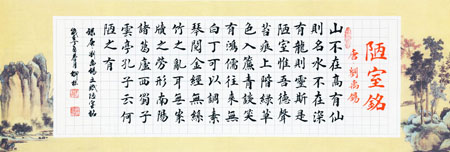 陋室銘
唐 劉禹錫
山不在高有仙
則名水不在深
有龍則靈斯是
陋室惟吾德馨
苔痕上階綠草
色入簾青談笑
有鴻儒往來無
白丁可以調素
琴閱金經無絲
竹之亂耳無案
牘之勞形南陽
諸葛廬西蜀子
雲亭孔子云何
陋之有
錄唐劉禹錫文陋室銘